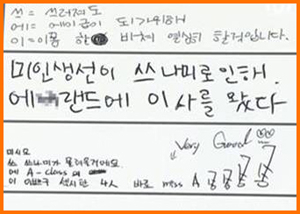 쓰 = 쓰러져도
에 = 에이급이 되기위해
이 = 이몸 한 바쳐 열심히 할것입니다.
미인생선이 쓰나미로 인해.
에 랜드에 이사를 왔다
미시요
쓰 쓰나미가 몰려올거에요
에 A-class 에
이 이번구 섹시단 4人 바로 miss A 공공공공
Very Good